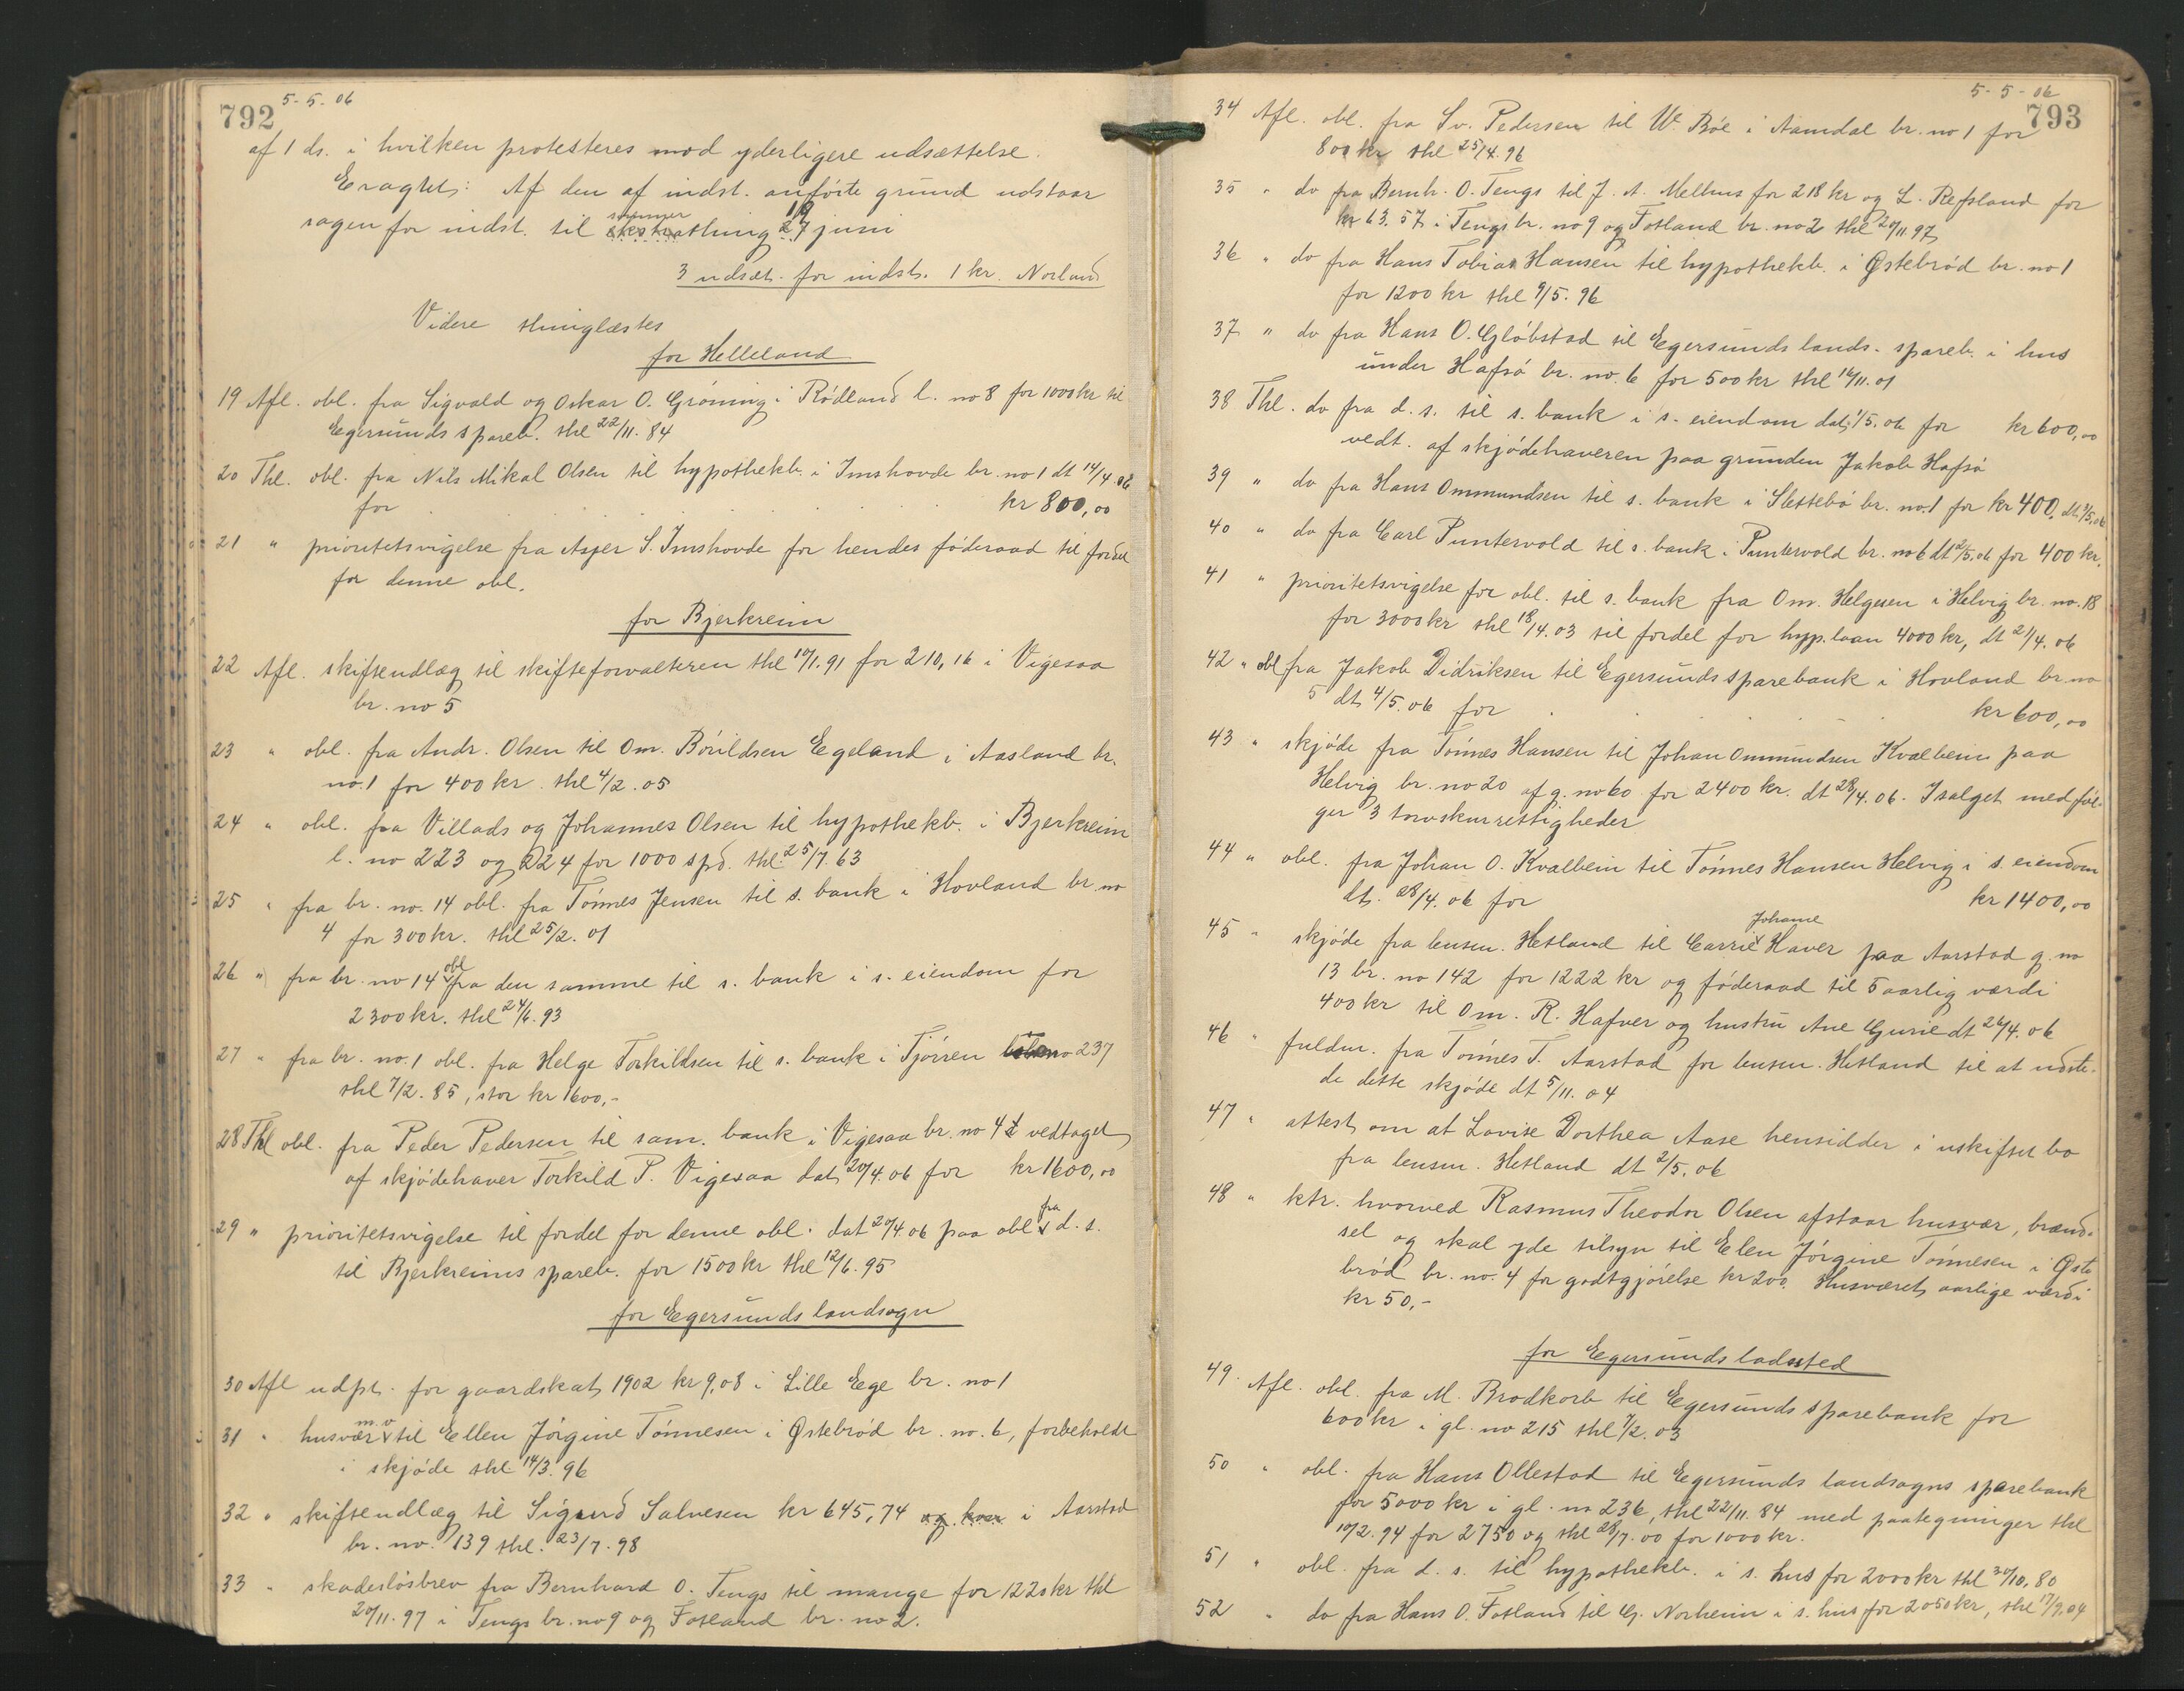 792 5-5-06
af 1 ds. i hvilken protesteres mod yderligere udsættelse.
Eragtet: Af den af indst. anførte grund udstaar
sagen for indst. til sommerthing 19 juni
3 udsæt. for indst. 1 kr. Norland
Videre thinglæstes
for Helleland
19 Afl. obl. fra Sigvald og Oskar O. Grøning i Rødland l. no 8 for 1000 kr til
Egersunds spareb. thl 22/11. 84
20 Thl. obl. fra Nils Mikal Olsen til hypothekb. i Imshovde br. no 1 dt 14/4 06
for kr 800,00
21 " prioritetsvigelse fra Asger S. Imshovde for hendes føderaad til fordel
for denne obl.
for Bjerkreim
22 Afl. skifteudlæg til skifteforvalteren thl 10/1. 91 for 210,16 i Vigesaa
br. no 5
23 " obl. fra Andr. Olsen til Om. Børildsen Egeland i Aasland br.
no. 1 for 400 kr. thl 4/2. 05
24 " obl. fra Villads og Johannes Olsen til hypothekb. i Bjerkreim
l. no 223 og 224 for 1000 spd. thl. 25/7. 63
25 " fra br. no. 14 obl. fra Tønnes Jensen til s. bank i Hovland br. no
4 for 300 kr. thl 25/2. 01
26 " fra br. no 14 obl fra den samme til s. bank i s. eiendom for
2300 kr. thl 24/6. 93
27 " fra br. no. 1 obl. fra Helge Torkildsen til s. bank i Tjørren no 237
thl 7/2. 85, stor kr 1600,-
28 Thl obl. fra Peder Pedersen til sam. bank i Vigesaa br. no 4 vedtaget
af skjødehaver Torkild P. Vigesaa dat 20/4. 06 for kr 1600,00
29 " prioritetsvigelse til fordel for denne obl. dat 20/4. 06 paa obl fra d. s.
til Bjerkreims spareb. for 1500 kr thl 12/6. 95
for Egersunds landsogn
30 Afl udpt. for gaardskat 1902 kr 9,08 i Lille Eege br. no 1
31 " husvær m.v til Ellen Jørgine Tønnesen i Østebrød br. no. 6, forbeholdt
i skjøde thl. 14/3. 96
32 " skifteudlæg til Sigurd Salvesen kr 645,74 og hver i Aarstad
br. no. 139 thl. 23/7. 98
33 " skadesløsbrev fra Bernhard O. Tengs til mange for 1220 kr thl
20/11. 97 i Tengs br. no 9 og Fotland br. no 2.
5-5-06 793
34 Afl. obl. fra Sv. Pedersen til W. Bøe i Aamdal br. no 1 for
800 kr thl 25/4. 96
35 " do fra Bernh. O. Tengs til J. A. Mellus for 218 kr og L. Refsland for
kr 63.57 i Tengs br. no 9 og Fotland br. no 2 thl 20/11 97
36 " do fra Hans Tobias Hansen til hypothekb. i Østebrød br. no 1
for 1200 kr thl 9/5. 96
37 " do fra Hans O. Gløbstad til Egersunds lands. spareb. i hus
under Hafsø br. no. 6 for 500 kr thl 16/11. 01
38 Thl. do fra d. s. til s. bank i s. eiendom dat 1/5. 06 for kr 600,00
vedt. af skjødehaveren paa grunden Jakob Hafsø
39 " do fra Hans Ommundsen til s. bank i Slettebø br. no. 1 for kr 400, dt 2/5. 06
40 " do fra Carl Puntervold til s. bank i Puntervold br. no 6 dt 2/5. 06 for 400 kr.
41 " prioritetsvigelse for obl. til s. bank fra Om. Helgesen i Helvig br. no. 18
for 3000 kr thl 18/4. 03 til fordel for hyp. laan 4000 kr, dt 21/4. 06
42 " obl fra Jakob Didriksen til Egersunds sparebank i Hovland br. no
5 dt 4/5. 06 for kr 600,00
43 " skjøde fra Tønnes Hansen til Johan Ommundsen Kvalbein paa
Helvig br. no 20 af g. no 60 for 2400 kr. dt 28/4. 06. I salget medføl-
ger 3 torvskurrettigheder
44 " obl. fra Johan O. Kvalbein til Tønnes Hansen Helvig i s. eiendom
dt. 28/4. 06 for kr 1400,00
45 " skjøde fra lensm. Hetland til Carrie Johanne Haver paa Aarstad g. no
13 br. no 142 for 1222 kr og føderaad til 5 aarlig værdi
400 kr til Om. R. Hafver og hustru Ane Gurie dt 26/4. 06
46 " fuldm. fra Tønnes T. Aarstad for lensm. Hetland til at udste-
de dette skjøde dt 5/11. 04
47 " attest om at Lovise Dorthea Aase hensidder i uskiftet bo
fra lensm. Hetland dt 2/5. 06
48 " ktr. hvorved Rasmus Theodor Olsen afstaar husvær, brænd-
sel og skal yde tilsyn til Elen Jørgine Tønnesen i Øste
brød br. no. 4 for godtgjørelse kr 200. Husværets aarlige værdi
kr 50,-
for Egersunds ladested
49. Afl. obl. fra M. Brodkorb til Egersunds sparebank for
600 kr i gl. no 215 thl 7/2. 03
50 " obl. fra Hans Ollestad til Egersunds landsogns sparebank
for 5000 kr i gl. no 236, thl 22/11. 84 med paategninger thl
10/2. 94 for 2750 og thl 28/7. 00 for 1000 kr.
51 " obl. fra d. s. til hypothekb. i s. hus for 2000 kr thl 30/10. 80
52 " do fra Hans O. Fotland til G. Norheim i s. hus for 2050 kr, thl 17/9. 04